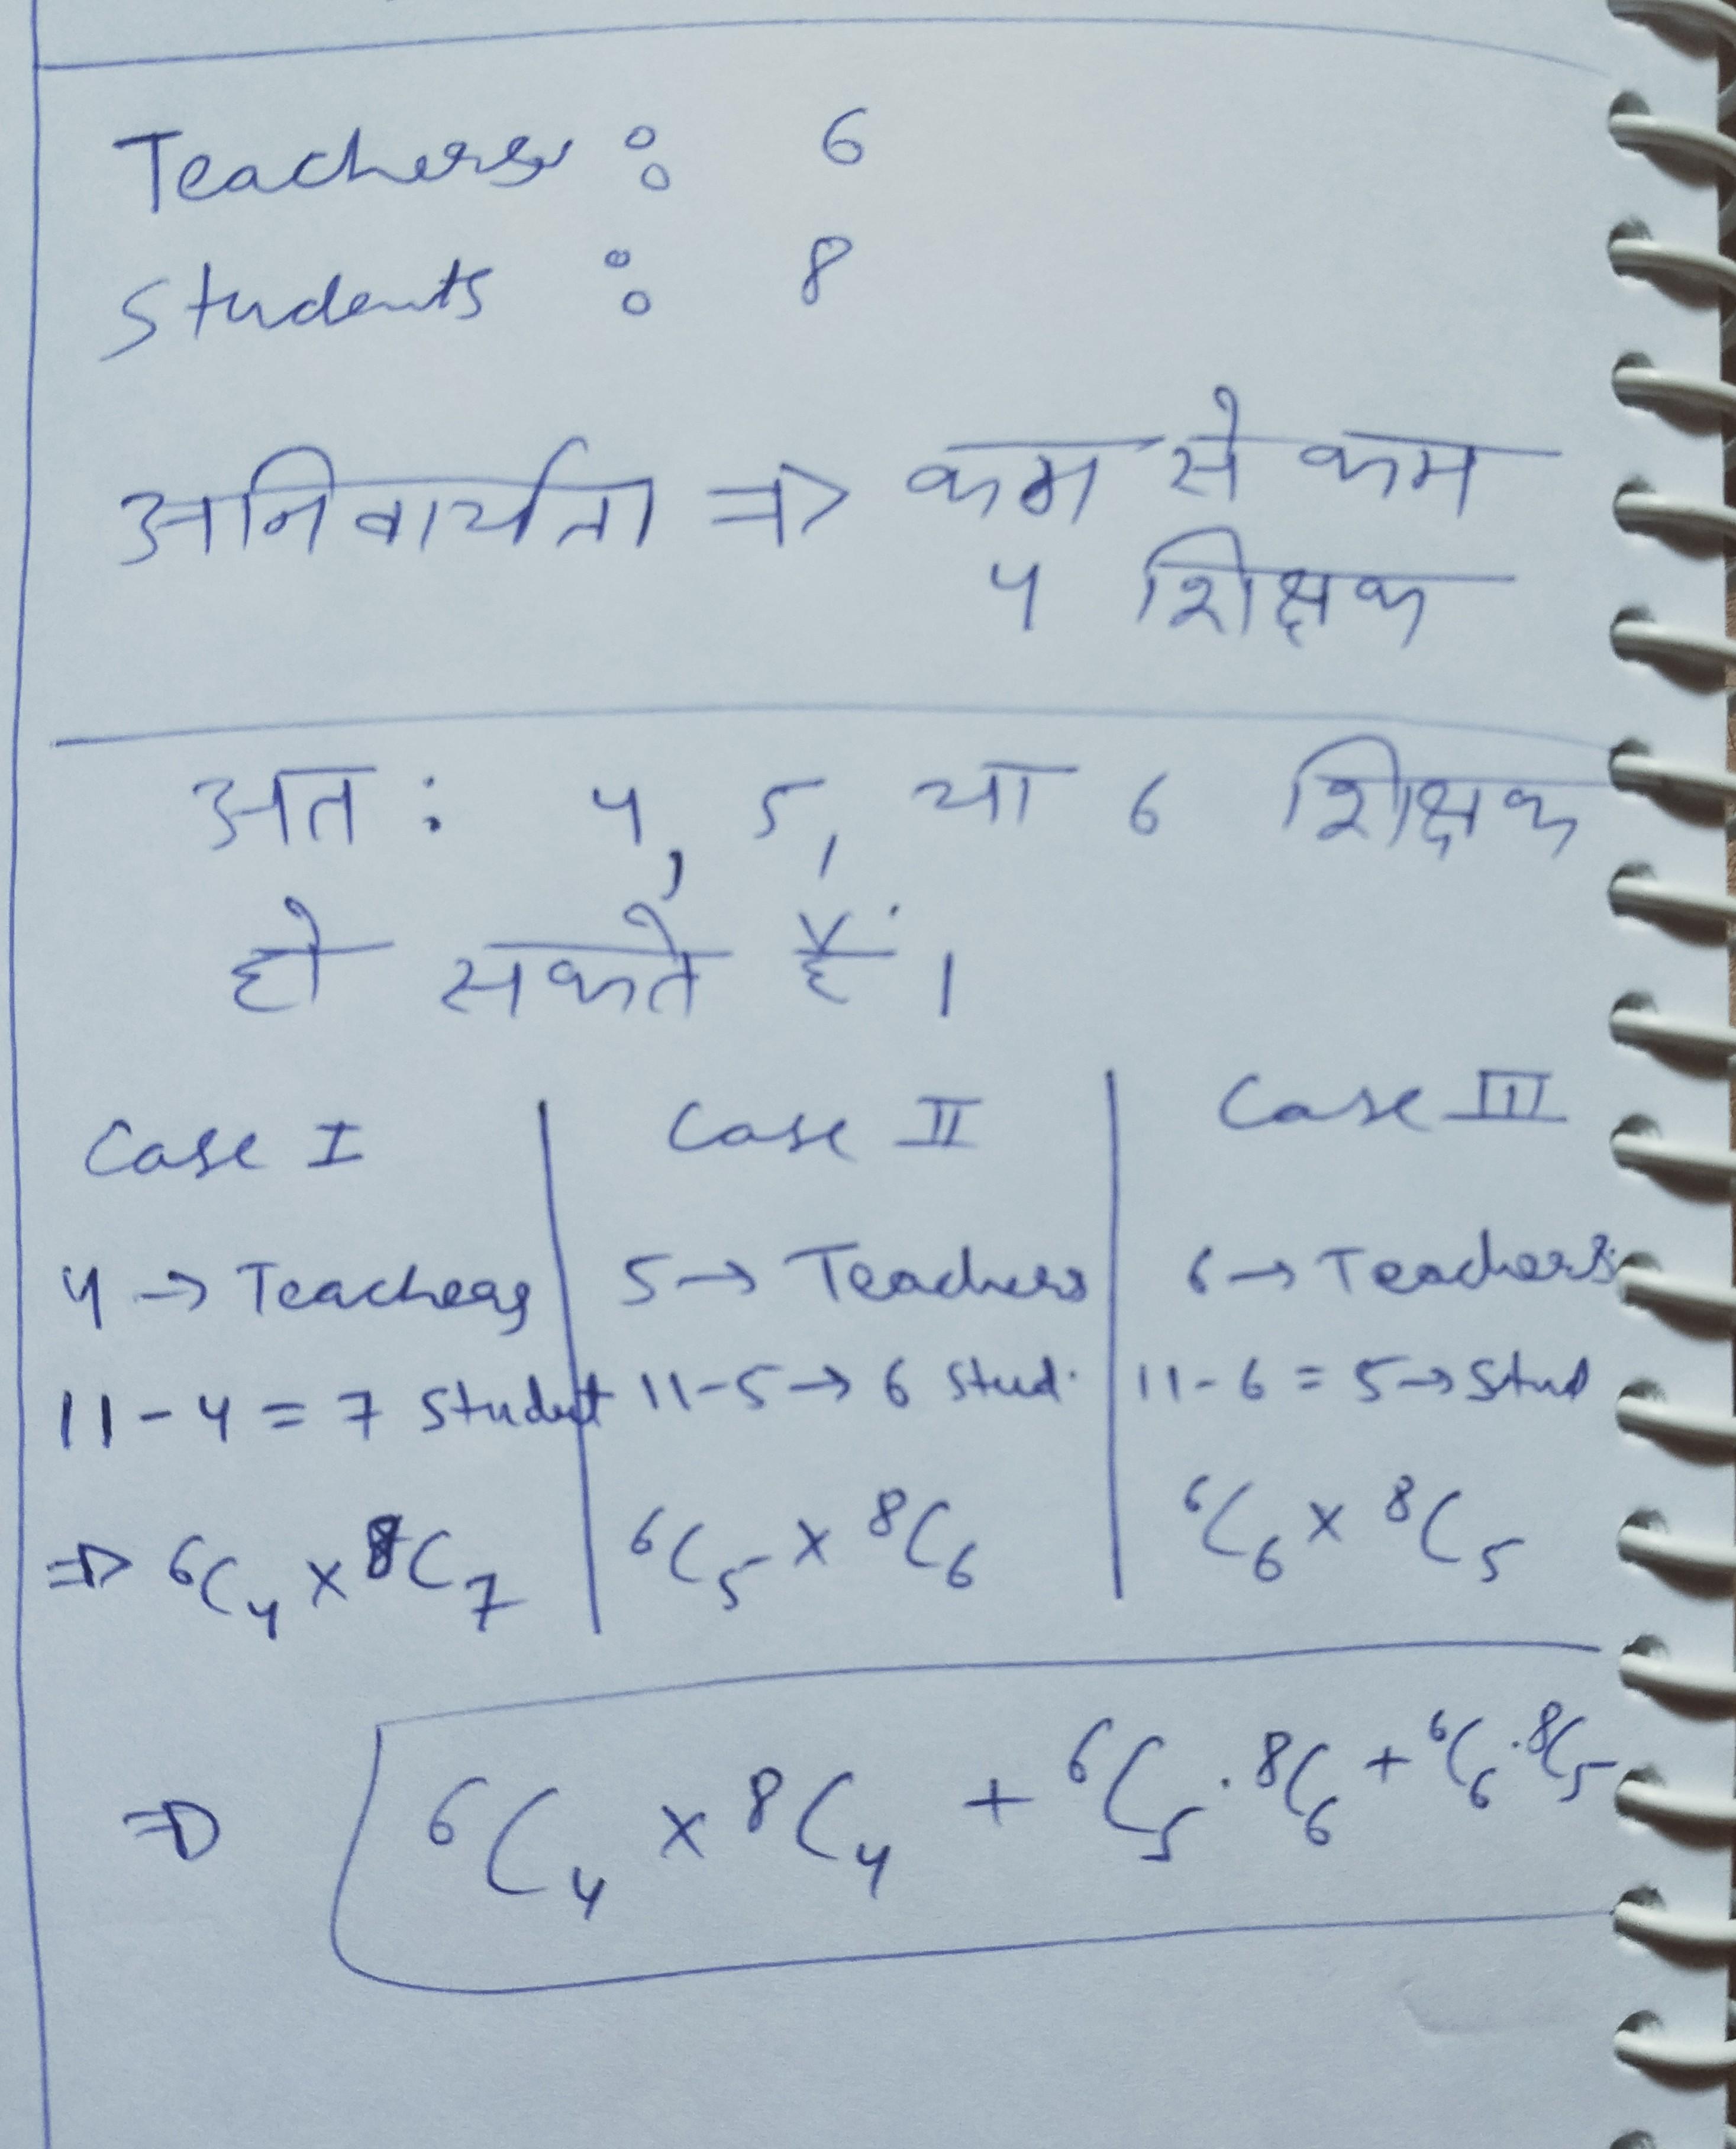 Teachers : 6
Students : 8
अनिवार्यता => कम से कम
4 शिक्षक
अत : 4, 5, या 6 शिक्षक
हो सकते हैं ।
Case I | Case II | Case III
4 → Teachers | 5 → Teachers | 6 → Teachers
11 - 4 = 7 Student | 11-5 → 6 Stud. | 11-6 = 5 → Stud
=> ⁶C₄ × ⁸C₇ | ⁶C₅ × ⁸C₆ | ⁶C₆ × ⁸C₅
=> ⁶C₄ × ⁸C₄ + ⁶C₅ . ⁸C₆ + ⁶C₆ . ⁸C₅